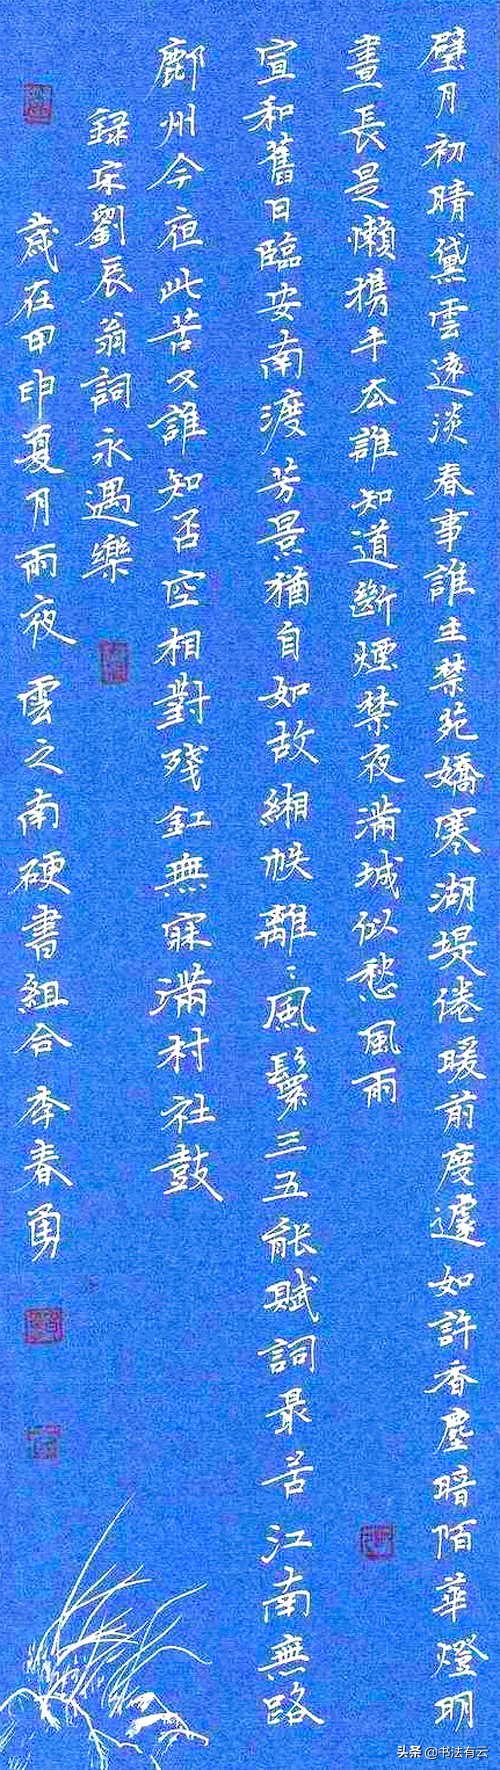 璧月初晴黛雲遠淡春事誰主禁苑嬌寒湖堤倦暖前度遽如許香塵暗陌華燈明
晝長是懶携手去誰知道斷煙禁夜滿城似愁風雨
宣和舊日臨安南渡芳景猶自如故緗帙離〻風鬟三五能賦詞最苦江南無路
鄜州今夜此苦又誰知否空相對殘釭無寐滿村社鼓
錄宋劉辰翁詞永遇樂
歲在甲申夏月雨夜雲之南硬書組合李春勇
头条 @书法有云